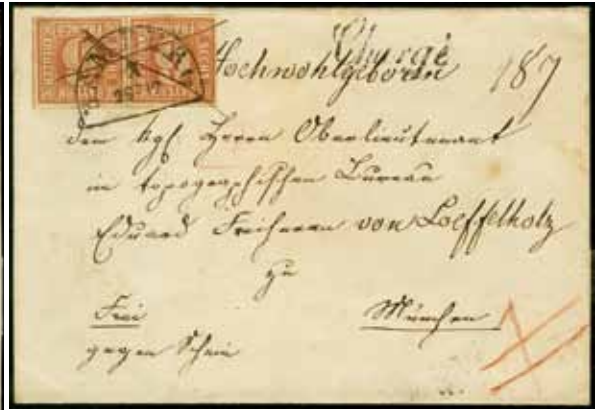 Chargé
Hochwohlgeboren 187
dem kgl Herrn Oberlieutenant
im topographischen Bureau
Eduard Freiherrn von Loeffelholz
zu
Frei München
gegen Schein